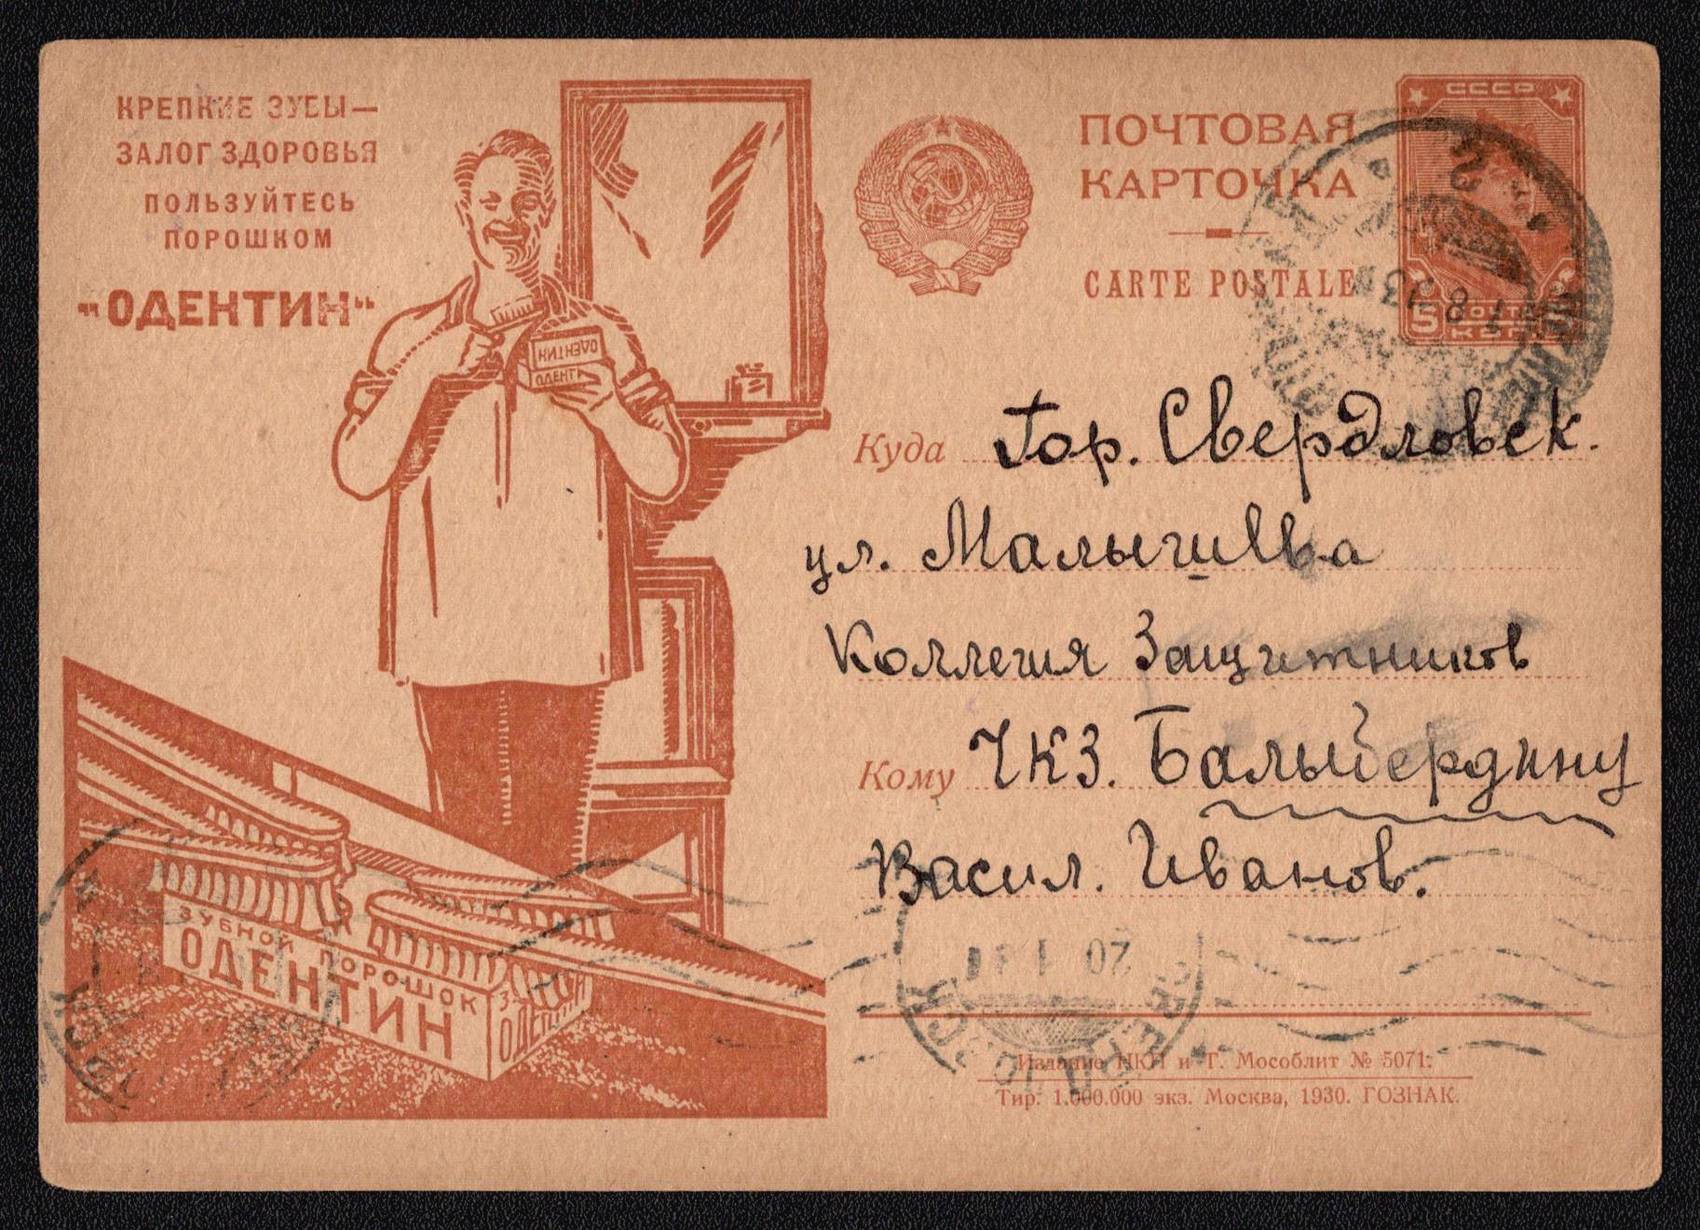 КРЕПКИЕ ЗУБЫ—
ЗАЛОГ ЗДОРОВЬЯ
ПОЛЬЗУЙТЕСЬ
ПОРОШКОМ
„ОДЕНТИН“
ОДЕНТИН
ОДЕНТ
ЗУБНОЙ ПОРОШОК
ОДЕНТИН
ПОЧТОВАЯ
КАРТОЧКА
CARTE POSTALE
СССР
5 ПОЧТА 5
КОП
Куда Гор. Свердловск.
ул. Малышева
Коллегия Защитников
Кому ЧКЗ. Балыбердину
Васил. Иванов.
20 1 31
СВЕРДЛОВСК
Издание НКП и Т. Мособлит № 5071.
Тир. 1.000.000 экз. Москва, 1930. ГОЗНАК.